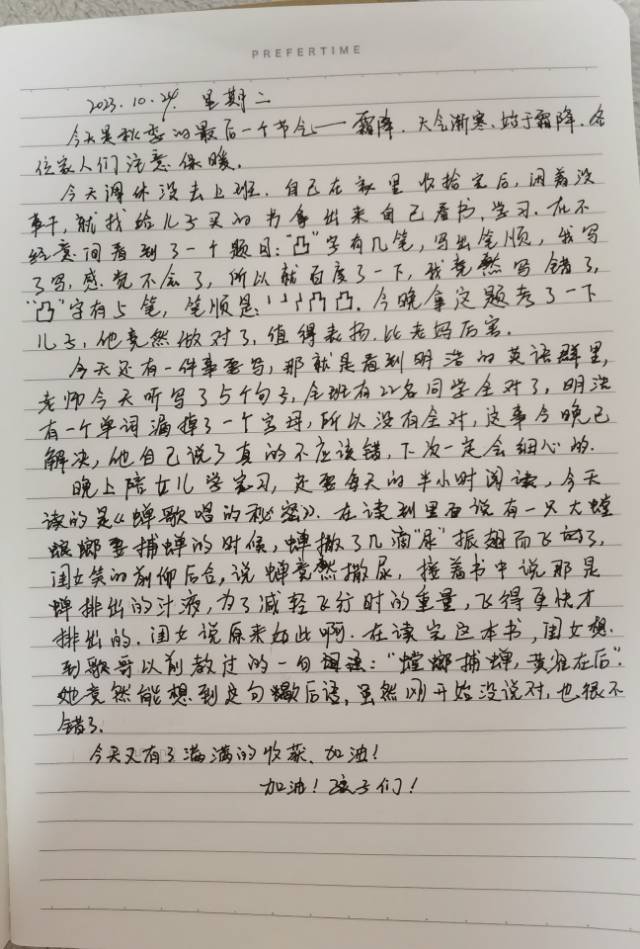 PREFERTIME
2023.10.24. 星期二
今天是秋季的最后一个节气——霜降. 天气渐寒, 始于霜降, 各
位家人们注意保暖。
今天调休没去上班. 自己在家里收拾完后, 闲着没
事干, 就找给儿子买的书拿出来自己看书, 学习. 在不
经意间看到了一个题目: "凸"字有几笔, 写出笔顺, 我写
了写, 感觉不会了, 所以就百度了一下, 我竟然写错了,
"凸"字有5笔, 笔顺是: 凸. 今晚拿这题考了一下
儿子, 他竟然做对了, 值得表扬. 比老妈厉害.
今天还有一件事要写, 那就是看到明浩的英语群里,
老师今天听写了5个句子, 全班有22名同学全对了, 明浩
有一个单词漏掉了一个字母, 所以没有全对, 这事今晚已
解决, 他自己说了真的不应该错, 下次一定会细心的.
晚上陪女儿学习, 还要每天的半小时阅读, 今天
读的是《蝉歌唱的秘密》. 在读到里面说有一只大螳
螂要捕蝉的时候, 蝉撒了几滴"尿"振翅而飞时了,
闺女笑的前仰后合, 说蝉竟然撒尿, 接着书中说那是
蝉排出的汁液, 为了减轻飞行时的重量, 飞得更快才
排出的. 闺女说原来如此啊. 在读完这本书, 闺女想
到歌哥以前教过的一句: "螳螂捕蝉, 黄雀在后".
她竟然能想到这句歇后语, 虽然刚开始没说对, 也很不
错了.
今天又有了满满的收获、加油!
加油! 孩子们!